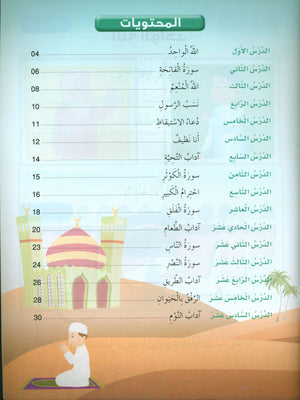 المحتويات
الدَّرْسُ الأوّل اللهُ الْواحِدُ 04
الدَّرْسُ الثّاني سورَةُ الْفاتِحَةِ 06
الدَّرْسُ الثّالث اللهُ الْمُنْعِمُ 08
الدَّرْسُ الرّابع نَسَبُ الرَّسولِ 10
الدَّرْسُ الْخامس دُعاءُ الاسْتيقاظِ 11
الدَّرْسُ السّادس أَنا نَظيفٌ 12
الدَّرْسُ السّابع آدابُ التَّحِيَّةِ 14
الدَّرْسُ الثّامن سورَةُ الْكَوْثَرِ 15
الدَّرْسُ التّاسع احْتِرامُ الْكَبيرِ 16
الدَّرْسُ الْعاشر سورَةُ الْفَلَقِ 18
الدَّرْسُ الْحادي عَشَر آدابُ الطَّعامِ 20
الدَّرْسُ الثّاني عَشَر سورَةُ النّاسِ 22
الدَّرْسُ الثّالث عَشَر سورَةُ النَّصْرِ 24
الدَّرْسُ الرّابع عَشَر آدابُ الطَّريقِ 26
الدَّرْسُ الْخامس عَشَر الرِّفْقُ بِالْحَيَوانِ 28
الدَّرْسُ السّادس عَشَر آدابُ النَّوْمِ 30